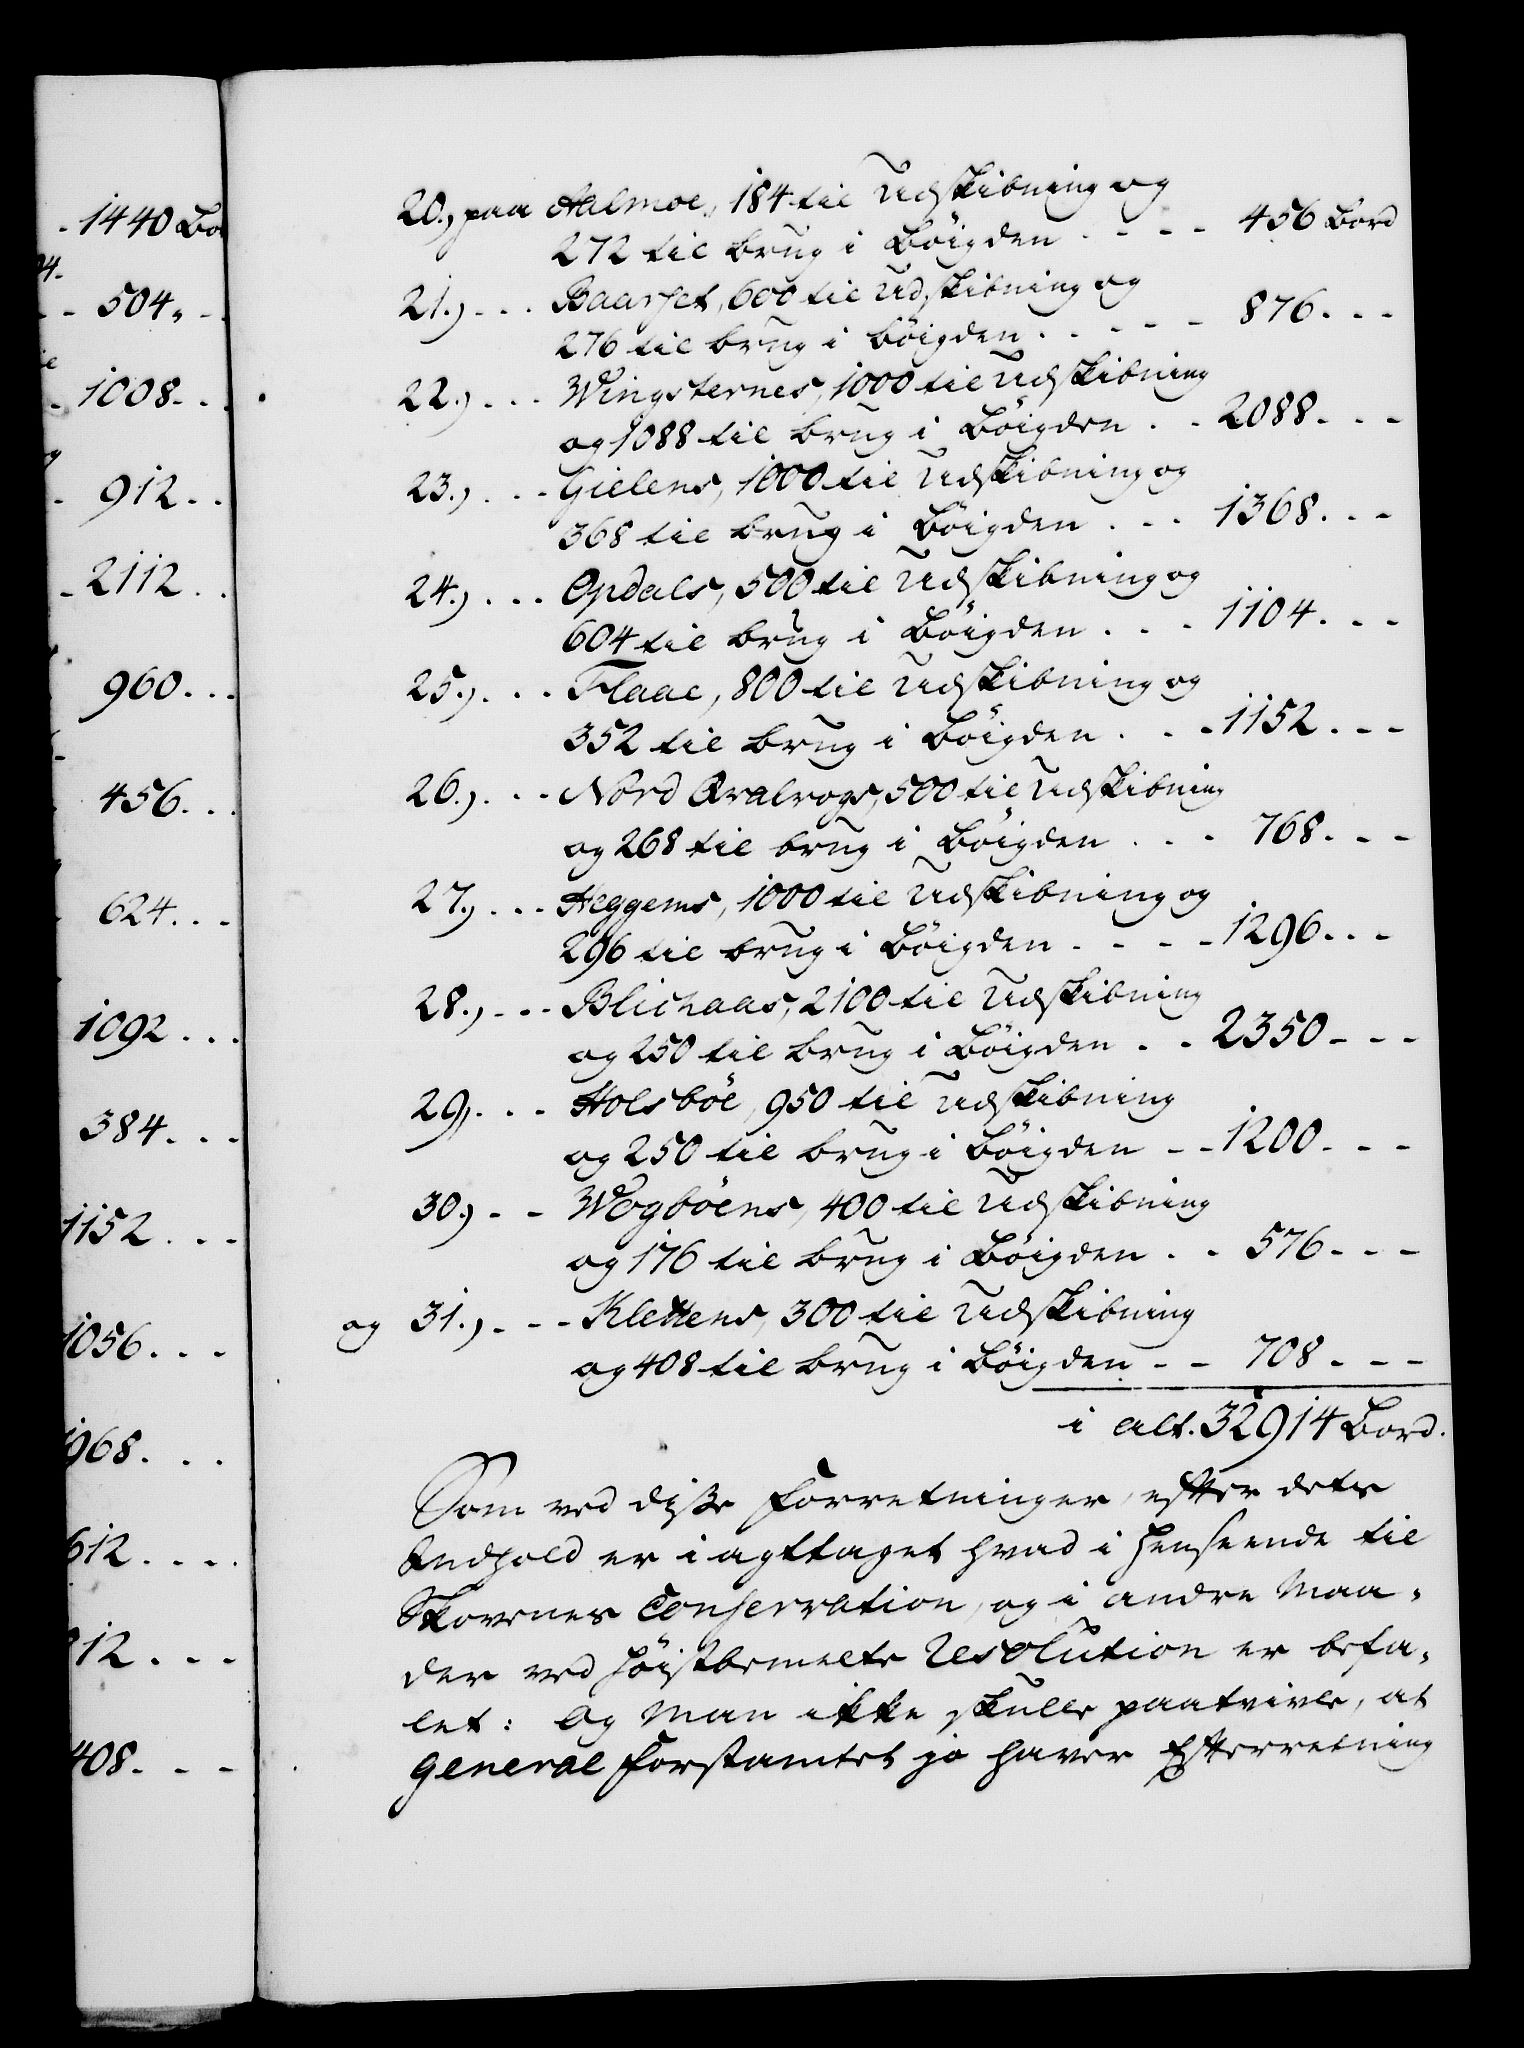 - 1440 Bo
- - 504 „ -
- 1008 - . .
- 912 . .
- 2112 . .
960 . . .
456 . . .
624 . . -
1092 . . .
384 . . .
1152 . . -
1056 . . .
1968 . . .
612 . . . .
812 . . .
408 . - -
20.) paa Aalmoe, 184 til Udskibning og
272 til brug i Bøigden . - - - 456 Bord
21.) - . . Baarset, 600 til Udskibning og
276 til brug i bøigden . . - - - 876 . - -
22.) . . . Wingsternes, 1000 til Udskibning
og 1088 til brug i Bøigden . . 2088 . - -
23.) . . . Gielens, 1000 til Udskibning og
368 til brug i Bøigden . . . 1368 . . -
24.) . . . Opdals, 500 til Udskibning og
604 til brug i Bøigden . . . 1104 . - -
25.) . . . Flaae, 800 til Udskibning og
352 til brug i Bøigden . . - 1152 . - -
26.) . . . Nord 500 til Udskibning
og 268 til brug i Bøigden . . . 768 . - -
27.) . . . Heggems, 1000 til Udskibning og
296 til brug i Bøigden . - - - 1296 . . -
28.) - . . Blichaas, 2100 til Udskibning
og 250 til brug i Bøigden . . 2350 - - -
29.) . . . Holsböe, 950 til Udskibning
og 250 til brug i Bøigden - - 1200 . - -
30.) - - Wogböens, 400 til Udskibning
og 176 til brug i Bøigden . . 576 - - -
og 31.) - - - Klettens, 300 til Udskibning
og 408 til brug i Bøigden - - 708 - - -
i alt. 32914 Bord.
Som ved disse Forretninger, efter dets
Indhold er iagttaget hvad i Henseende til
Skovenes Conservation, og i andre Maa-
der ved høistbemelte Resolution er befa-
let: Og Man ikke skulle paatvivle, at
General Forstamtet jo haver Efterretning